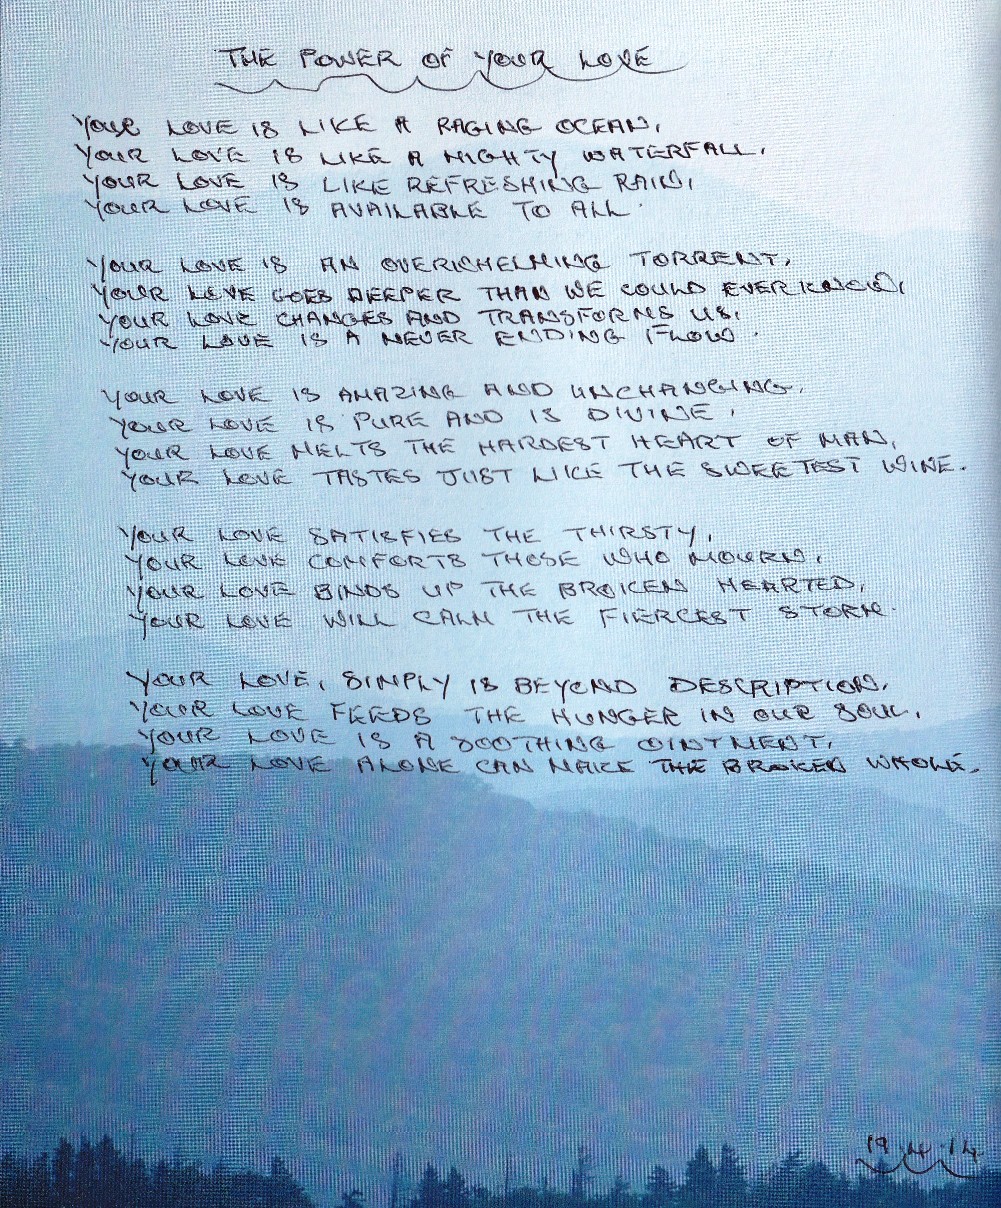 THE POWER OF YOUR LOVE
YOUR LOVE IS LIKE A RAGING OCEAN,
YOUR LOVE IS LIKE A MIGHTY WATERFALL,
YOUR LOVE IS LIKE REFRESHING RAIN,
YOUR LOVE IS AVAILABLE TO ALL.
YOUR LOVE IS AN OVERWHELMING TORRENT,
YOUR LOVE GOES DEEPER THAN WE COULD EVER KNOW,
YOUR LOVE CHANGES AND TRANSFORMS US,
YOUR LOVE IS A NEVER ENDING FLOW.
YOUR LOVE IS AMAZING AND UNCHANGING,
YOUR LOVE IS PURE AND IS DIVINE,
YOUR LOVE MELTS THE HARDEST HEART OF MAN,
YOUR LOVE TASTES JUST LIKE THE SWEETEST WINE.
YOUR LOVE SATISFIES THE THIRSTY,
YOUR LOVE COMFORTS THOSE WHO MOURN,
YOUR LOVE BINDS UP THE BROKEN HEARTED,
YOUR LOVE WILL CALM THE FIERCEST STORM.
YOUR LOVE, SIMPLY IS BEYOND DESCRIPTION,
YOUR LOVE FEEDS THE HUNGER IN OUR SOUL,
YOUR LOVE IS A SOOTHING OINTMENT,
YOUR LOVE ALONE CAN MAKE THE BROKEN WHOLE.
19.4.14